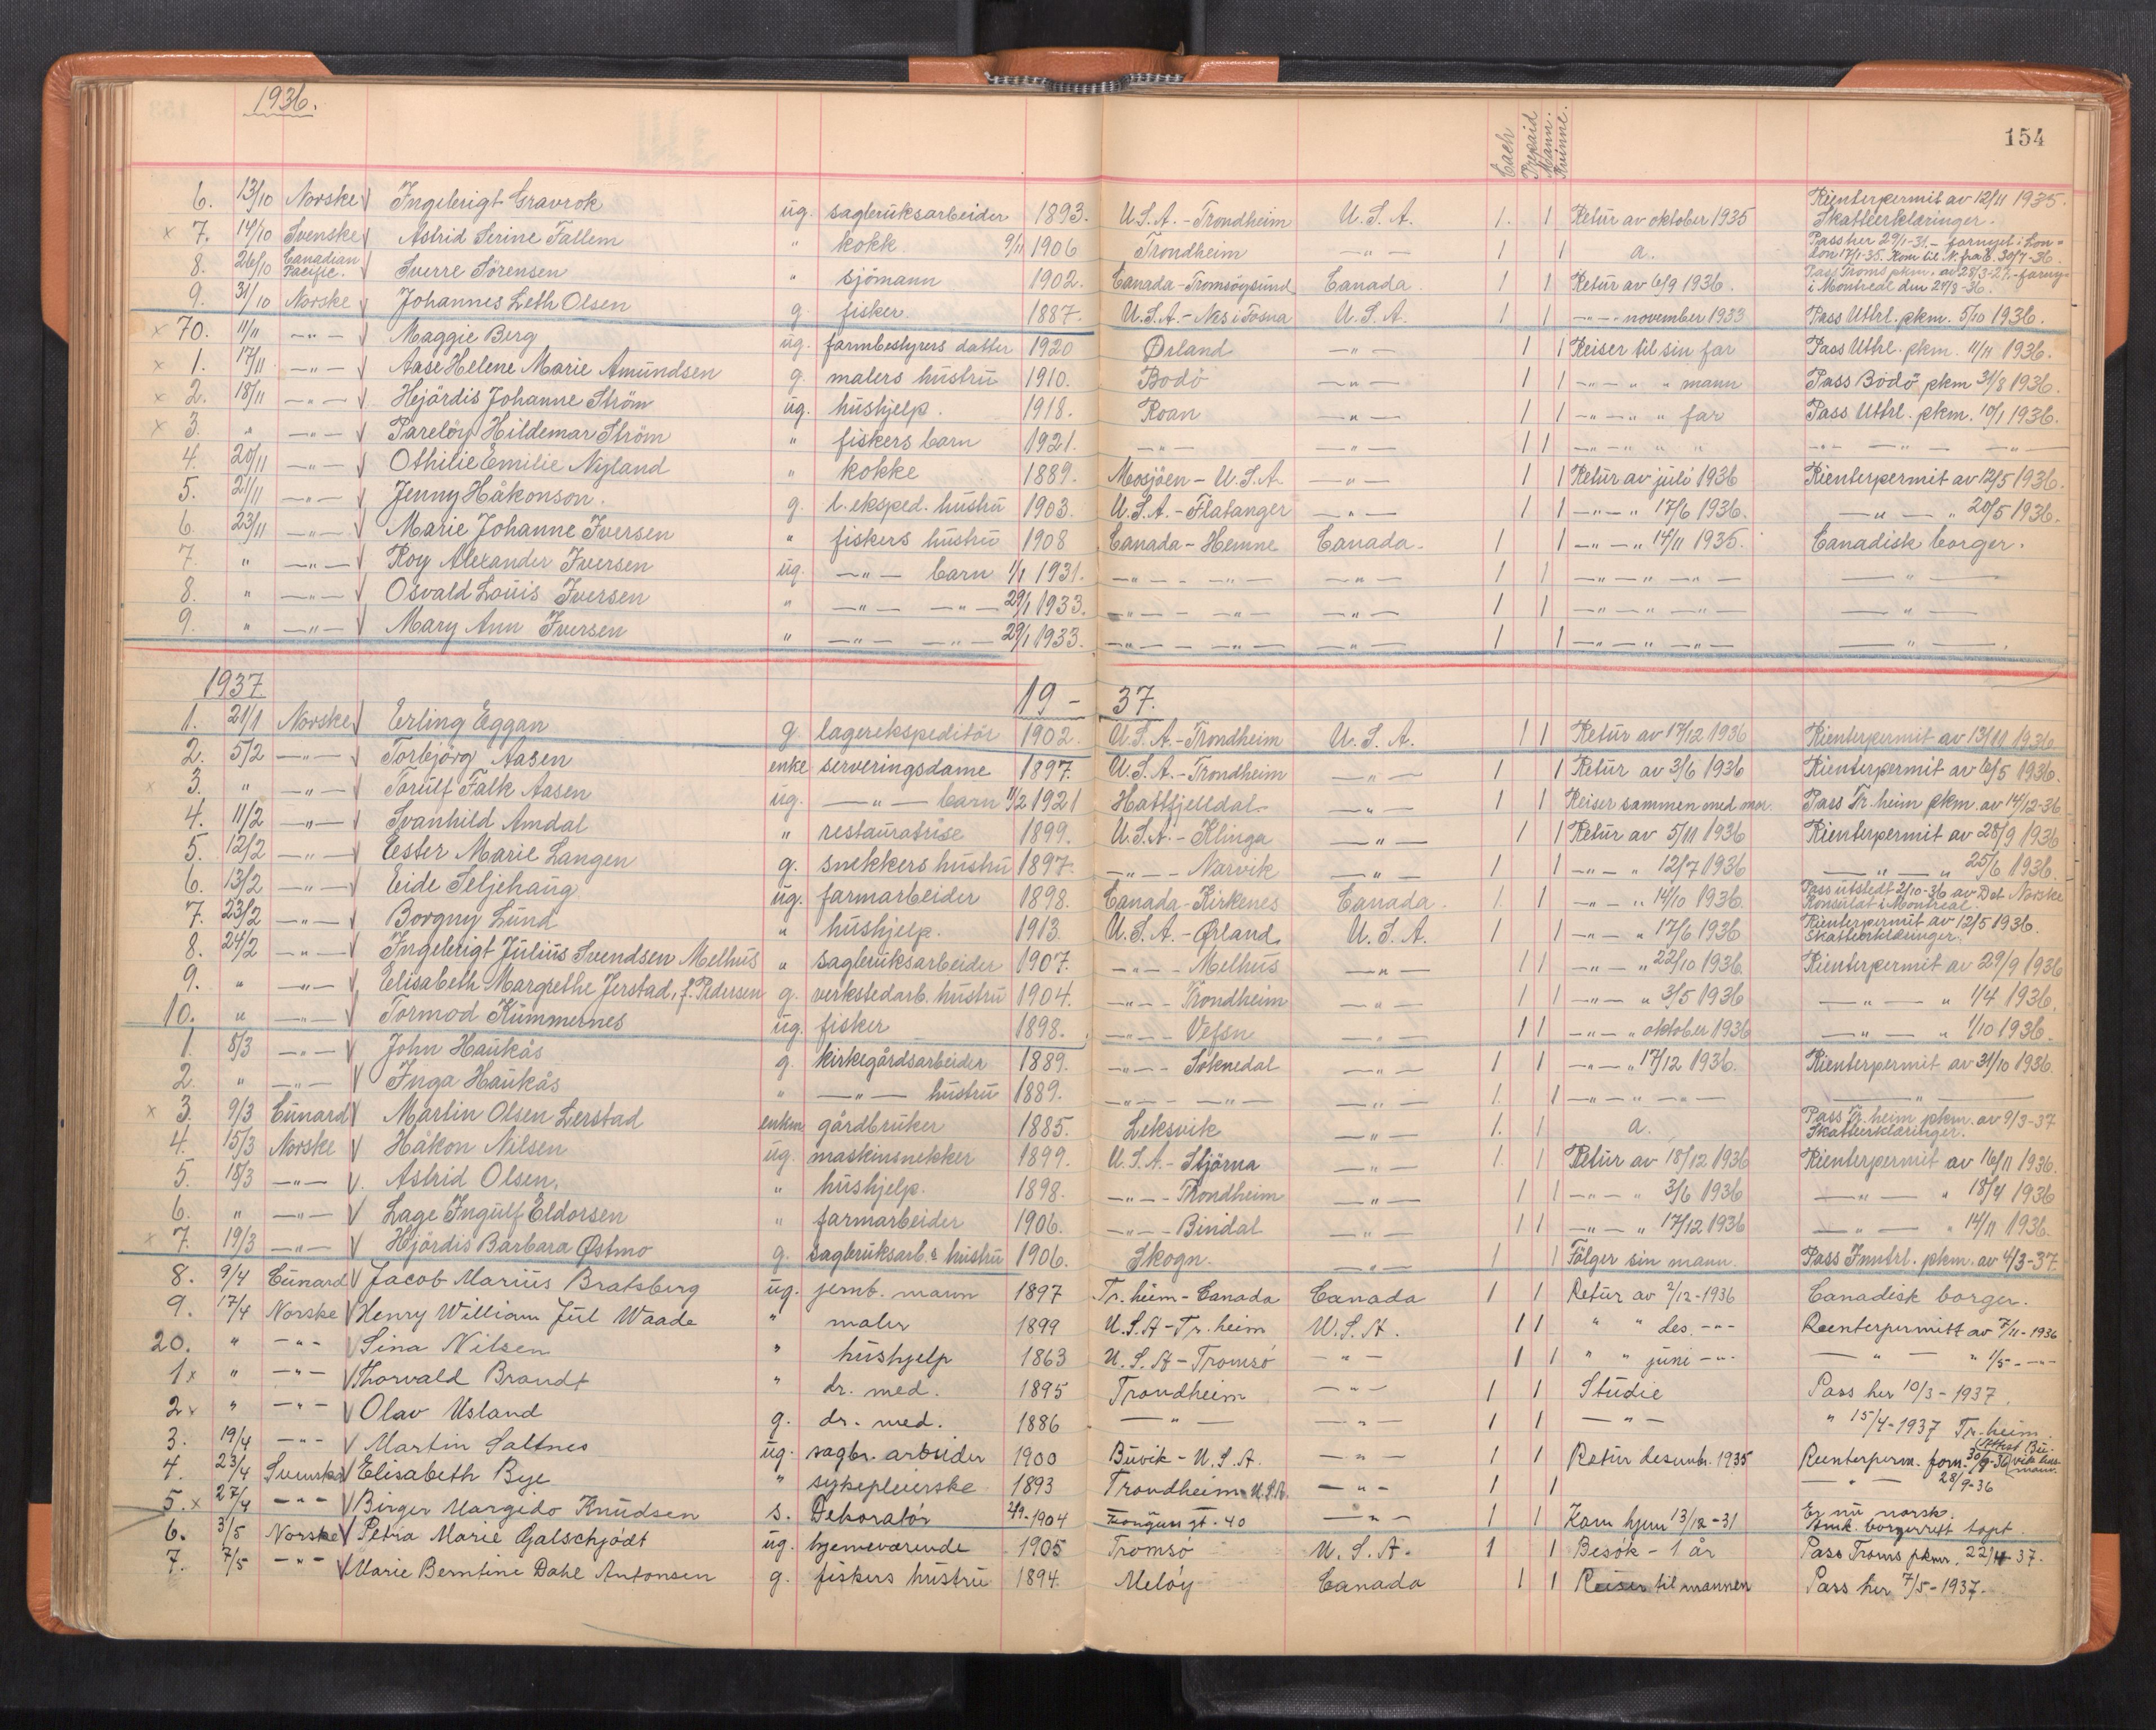 1936.
154
Cash Prepaid Mann. Kvinne.
6. 13/10 Norske √ Ingebrigt Gravrok ug. sagbruksarbeider 1893. U.S.A. - Trondheim U.S.A. 1. 1 Retur av oktober 1935 Rienterpermit av 12/11 1935. Skatteerklæringer.
x 7. 14/10 Svenske √ Astrid Serine Fallem " kokk 9/11 1906 Trondheim —"— 1 1 a. Pass her 29/1-31. - fornyet i London 17/1-35. Kom til N. fra E. 30/7-36.
8. 26/10 Canadian Pacific. √ Sverre Sörensen " sjömann 1902. Canada - Tromsöysund Canada. 1 1 Retur av 6/9 1936. Pass Troms pkm. av 28/3-27.-forny. i Montreal den 24/8-36.
9. 31/10 Norske √ Johannes Leth Olsen g. fisker. 1887. U.S.A. - Nes i Fosna U.S.A. 1 1 —"— november 1933 Pass Uttrl. pkm. 5/10 1936.
x 70. 11/11 —"— √ Maggie Berg ug. farmbestyrers datter 1920 Ørland —"— 1 1 Reiser til sin far Pass Uttrl. pkm. 11/11 1936.
x 1. 17/11 —"— √ Aase Helene Marie Amundsen g. malers hustru 1910. Bodö —"— 1 1 —"— " " mann Pass Bodö pkm 31/8 1936.
x 2. 18/11 —"— √ Hejördis Johanne Ström ug. hushjelp. 1918. Roan —"— 1 1 —"— " " far Pass Uttrl. pkm. 10/1 1936.
x 3. " —"— √ Parelöy Hildemar Ström " fiskers barn 1921. —"— —"— 1 1 —"— " " " —"— —"— —"—
4. 20/11 —"— √ Othilie Emilie Nyland " kokke 1889. Mosjöen - U.S.A. —"— 1 1 Retur av juli 1936 Rienterpermit av 12/5 1936.
5. 21/11 —"— √ Jenny Håkonson. g. l. eksped. hustru 1903. U.S.A. - Flatanger —"— 1 1 —"— " 17/6 1936. —"— " 20/5 1936.
6. 23/11 —"— √ Marie Johanne Iversen " fiskers hustru 1908 Canada - Hemne Canada. 1 1 —"— " 14/11 1935. Canadisk borger.
7. " —"— √ Roy Alexander Iversen ug. —"— barn 1/1 1931. —"— - —"— —"— 1 1 —"— " —"— —"—
8. " —"— √ Osvald Louis Iversen " —"— —"— 29/1 1933. —"— - —"— —"— 1 1 —"— " —"— —"—
9. " —"— √ Mary Ann Iversen " —"— —"— 29/1 1933. —"— - —"— —"— 1 1 —"— " —"— —"—
1937 19 - 37.
1. 21/1 Norske √ Erling Eggan g. lagerekspeditör 1902. U.S.A. - Trondheim U.S.A. 1 1 Retur av 17/12 1936 Rienterpermit av 13/11 1936
2. 5/2 —"— √ Torbjörg Aasen enke serveringsdame 1897. U.S.A. - Trondheim —"— 1 1 Retur av 3/6 1936 Rienterpermit av 6/5 1936.
x 3. " —"— √ Torulf Falk Aasen ug. —"— barn 11/2 1921 Hattfjelldal. —"— 1 1 Reiser sammen med mor. Pass Tr.heim pkm. av 14/12-36
4. 11/2 —"— √ Svanhild Amdal " restauratrise 1899. U.S.A. - Klinga —"— 1 1 Retur av 5/11 1936 Rienterpermit av 28/9 1936
5. 12/2 —"— √ Ester Marie Langen g. snekkers hustru 1897. —"— - Narvik —"— 1 1 —"— " 12/7 1936 —"— " 25/6 1936.
6. 13/2 —"— √ Eide Seljehaug ug. farmarbeider 1898. Canada - Kirkenes Canada. 1. 1 —"— " 14/10 1936. Pass utstedt 2/10-36 av Det Norske Konsulat i Montreal.
7. 23/2 —"— √ Borgny Lund " hushjelp. 1913 U.S.A. - Ørland. U.S.A. 1 1 —"— " 17/6 1936 Rienterpermit av 12/5 1936. Skatteerklæringer.
8. 24/2 —"— √ Ingebrigt Julius Svendsen Melhus " sagbruksarbeider 1907. —"— - Melhus —"— 1 1 —"— " 22/10 1936. Rienterpermit av 29/9 1936
9. " —"— √ Elisabeth Margrethe Jerstad, f. Pedersen g. verkstedarb. hustru 1904. —"— - Trondheim —"— 1 1 —"— " 3/5 1936 —"— " 1/4 1936.
10. " —"— √ Tormod Kummernes ug. fisker 1898. —"— - Vefsn —"— 1 1 —"— " oktober 1936 —"— " 1/10 1936.
1. 8/3 —"— √ John Haukås g. kirkegårdsarbeider 1889. —"— - Soknedal —"— 1 1 —"— " 17/12 1936. Rienterpermit av 31/10 1936.
2. " —"— √ Inga Haukås " —"— hustru 1889. —"— - —"— —"— 1. 1 —"— " —"— —"—
x 3. 9/3 Cunard √ Martin Olsen Lerstad enkm. gårdbruker 1885. Leksvik —"— 1. 1 a. Pass Tr.heim pkm. av 9/3-37 Skatteerklæringer.
4. 15/3 Norske √ Håkon Nilsen ug. maskinsnekker 1899. U.S.A. - Stjörna —"— 1. 1 Retur av 18/12 1936 Rienterpermit av 16/11 1936.
5. 18/3 —"— √. Astrid Olsen. " hushjelp. 1898. —"— - Trondheim —"— 1 1 —"— " 3/6 1936 —"— " 18/4 1936
6. " —"— √ Lage Ingulf Eldorsen " farmarbeider 1906. —"— - Bindal —"— 1 1 —"— " 17/12 1936 —"— " 14/11 1936.
x 7. 19/3 —"— √ Hjördis Barbara Østmo g. sagbruksarb.s hustru 1906. Skogn. —"— 1 1 Fölger sin mann. Pass Inntrl. pkm. av 4/3-37.
8. 9/4 Cunard √ Jacob Marius Bratsberg ug. jernb. mann 1897 Tr.heim - Canada Canada 1 1 Retur av 2/12-1936 Canadisk borger.
9. 17/4 Norske √ Henry William Jul Waade " maler 1899 U.S.A - Tr.heim U.S.A. 1 1 " " des. -"- Reenterpermitt av 7/11-1936
20. " -"- √ Sina Nilsen " hushjelp 1863 U.S.A - Tromsö -"- 1 1 " " juni -"- —"— " 1/5 - -"-
1x " -"- √ Thorvald Brandt " dr. med. 1895 Trondheim -"- 1 1 Studie Pass her 10/3-1937.
2x " -"- √ Olav Usland g. dr. med. 1886 —"— -"- 1 1 —"— " 15/4-1937 Tr.heim.
3. 19/4 -"- √ Martin Saltnes ug. sagbr. arbeider 1900 Buvik - U.S.A. -"- 1 1 Retur desemb. 1935 Reenterperm. forn. 30/9-36
4. 23/4 Svenske √ Elisabeth Bye " sykepleierske 1893 Trondheim U.S.A. -"- 1 1 —"— 28/9-36
5. x 27/4 -"- √ Birger Margido Knudsen s. Dekoratör 2/9-1904 gt. 40 -"- 1 1 Kom hjem 13/12-31 Er nu norsk. Amk. borgerrett tapt.
6. 3/5 Norske √ Petra Marie Galschjödt ug. hjemmeværende 1905 Tromsö U.S.A. 1 1 Besök - 1 år Pass Troms pkm. 22/4-37.
7. 7/5 -"- √ Marie Berntine Dahl Antonsen g. fiskers hustru 1894. Melöy Canada 1 1 Reiser til mannen Pass her 7/5-1937.